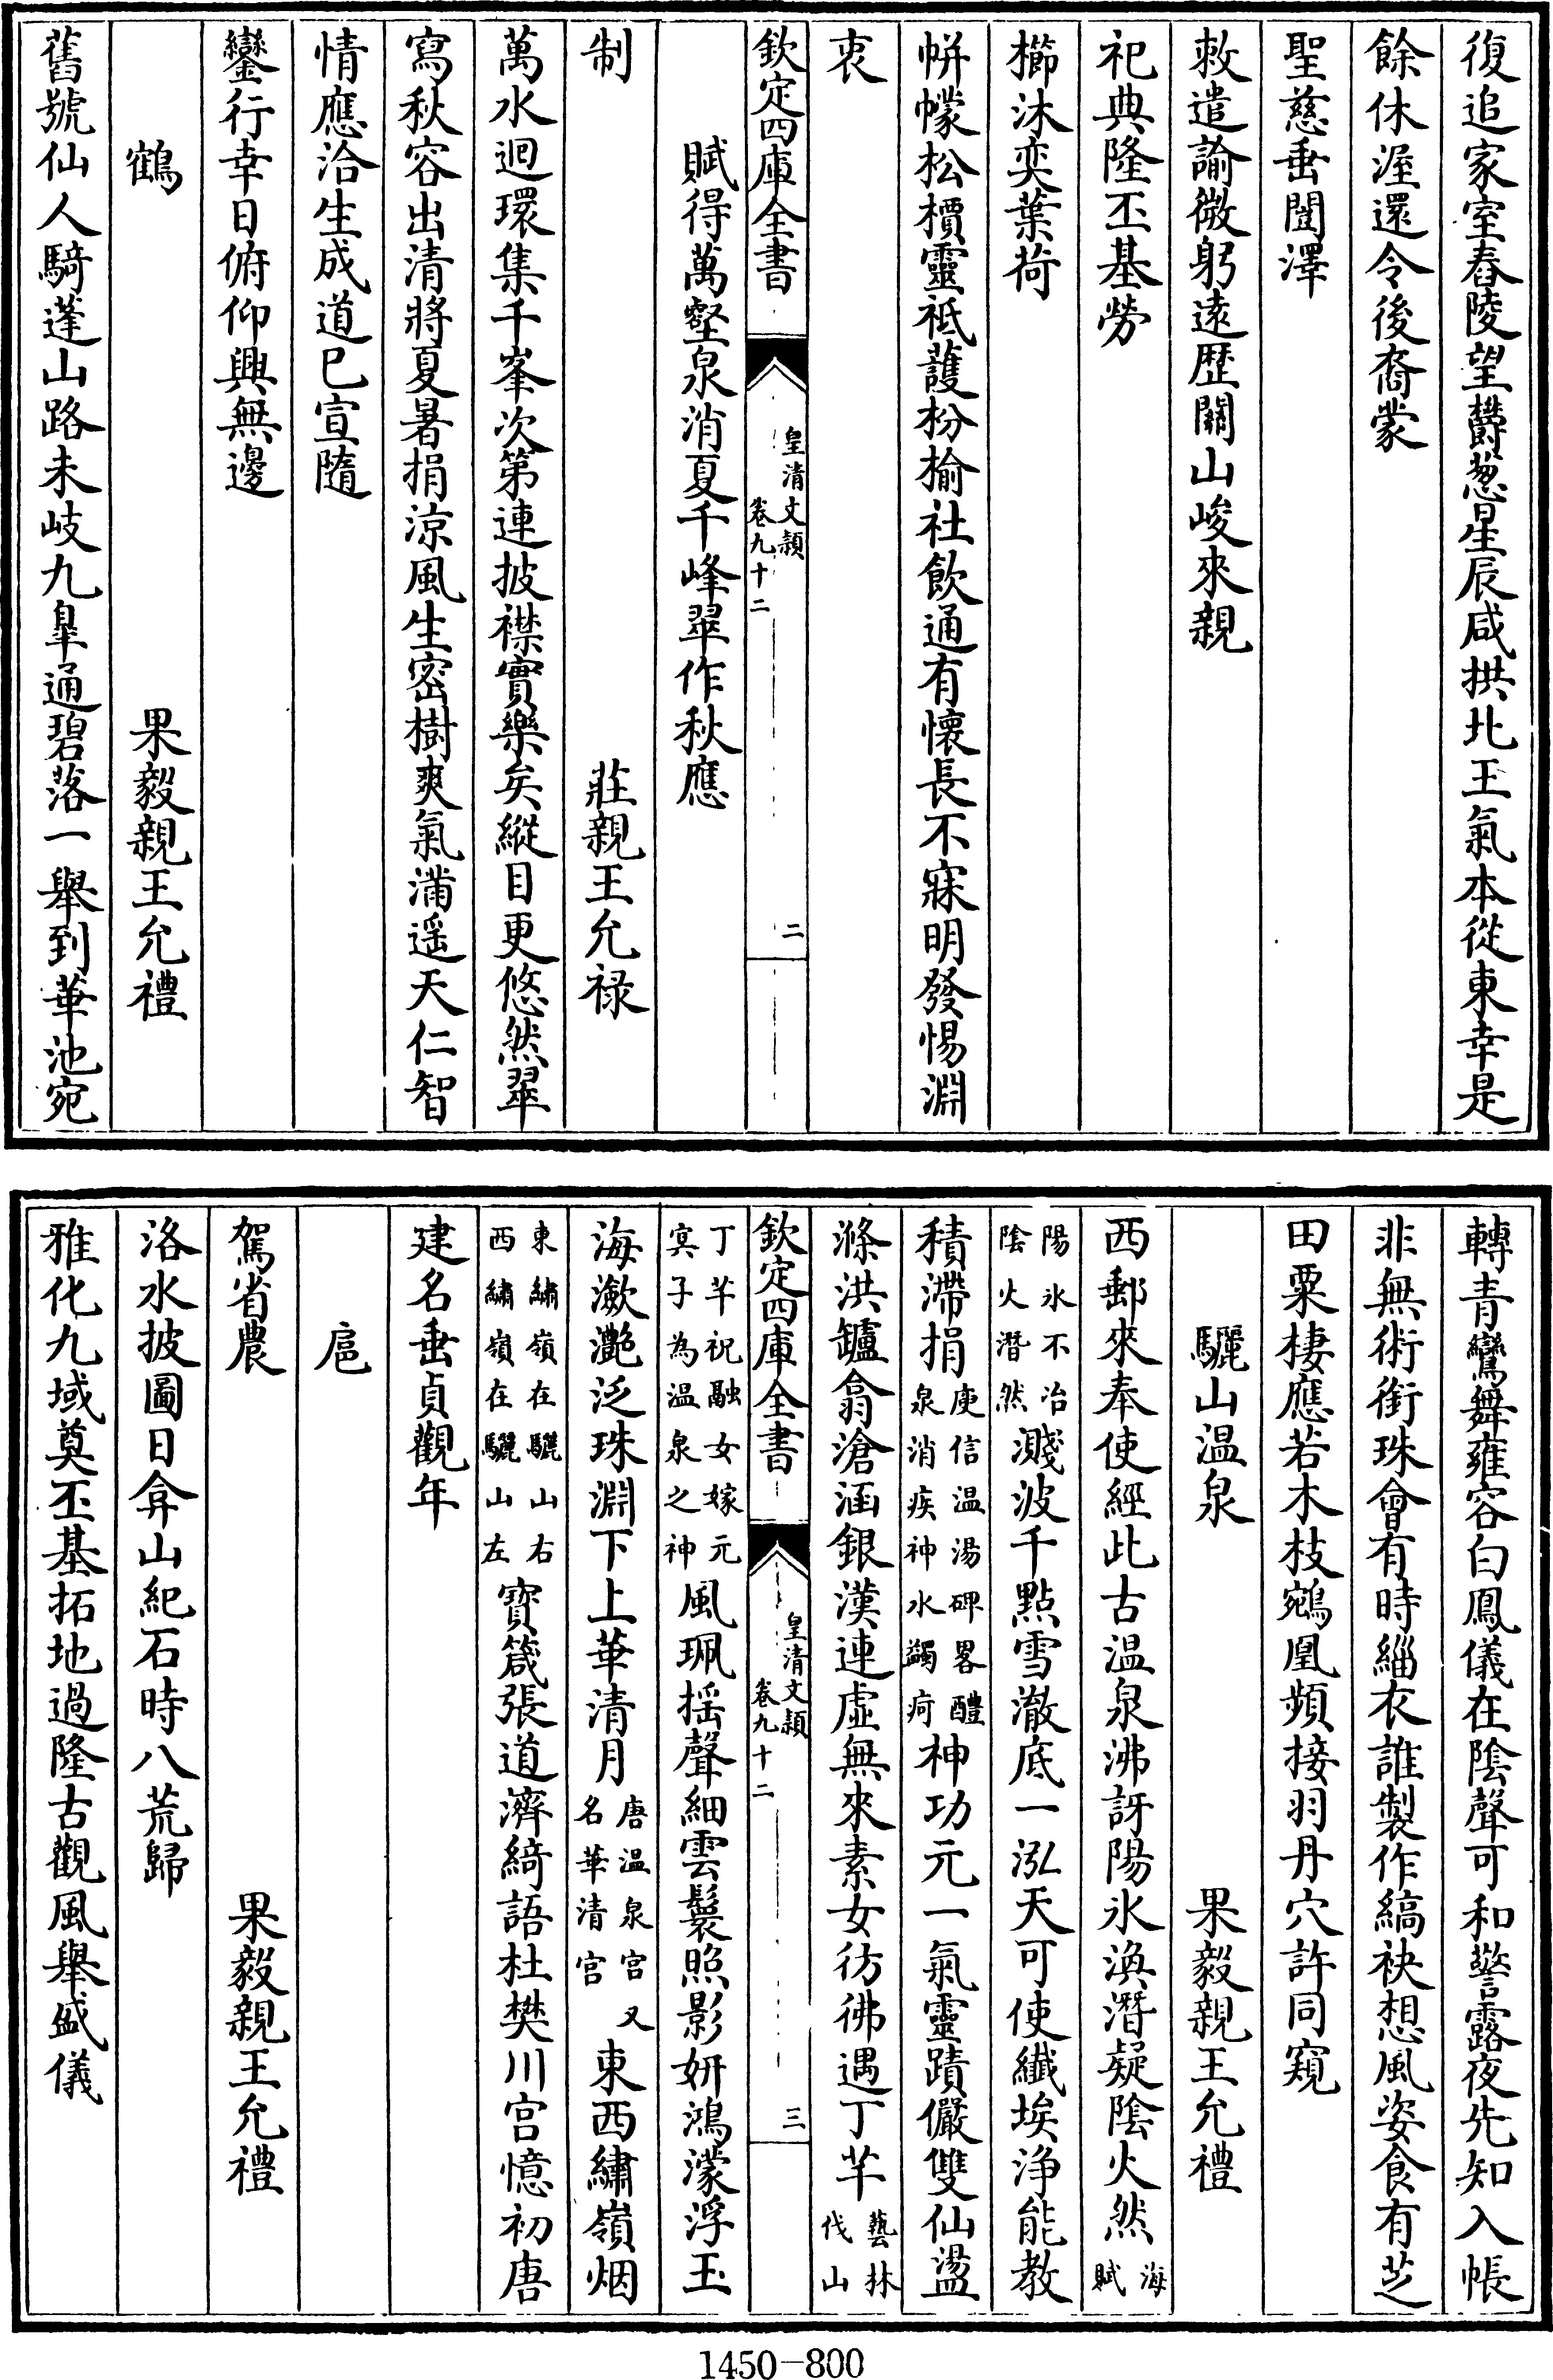 復追家室舂陵望欝葱星辰咸拱北王氣本從東幸是
餘休渥還令後裔蒙
聖慈垂闓澤
敕遣諭微躬遠歴關山峻來親
祀典隆丕基勞
櫛沐奕葉荷
帡幪松檟靈祗護枌榆社飲通有懷長不寐明發惕淵
衷
欽定四庫全書
皇清文頴
卷九十二
二
賦得萬壑泉消夏千峰翠作秋應
制
莊親王允禄
萬水迴環集千峯次第連披襟實樂矣縱目更悠然翠
寫秋容出清將夏暑捐涼風生密樹爽氣滿遥天仁智
情應洽生成道巳宣隨
鑾行幸日俯仰興無邊
鶴
果毅親王允禮
舊號仙人騎蓬山路未岐九臯通碧落一舉到華池宛
轉青鸞舞雍容白鳳儀在陰聲可和警露夜先知入帳
非無術銜珠會有時緇衣誰製作縞袂想風姿食有芝
田粟棲應若木枝鵷凰頻接羽丹穴許同窺
驪山温泉
果毅親王允禮
西郵來奉使經此古温泉沸訝陽氷渙潛疑陰火然海賦
陽氷不冶陰火潛然濺波千點雪澈底一泓天可使纎埃浄能教
積滯捐庾信温湯碑畧醴泉消疾神水蠲疴神功元一氣靈蹟儼雙仙盪
滌洪鑪翕滄涵銀漢連虚無來素女彷彿遇丁芊藝林伐山
欽定四庫全書
皇清文頴
卷九十二
三
丁芊祝融女嫁元㝠子為温泉之神風珮揺聲細雲鬟照影妍鴻濛浮玉
海潋灔泛珠淵下上華清月唐温泉宫又名華清宫東西繡嶺烟
東繡嶺在驪山右西繡嶺在驪山左寳箴張道濟綺語杜樊川宫憶初唐
建名垂貞觀年
扈
駕省農
果毅親王允禮
洛水披圖日弇山紀石時八荒歸
雅化九域奠丕基拓地過隆古觀風舉盛儀
1450-800